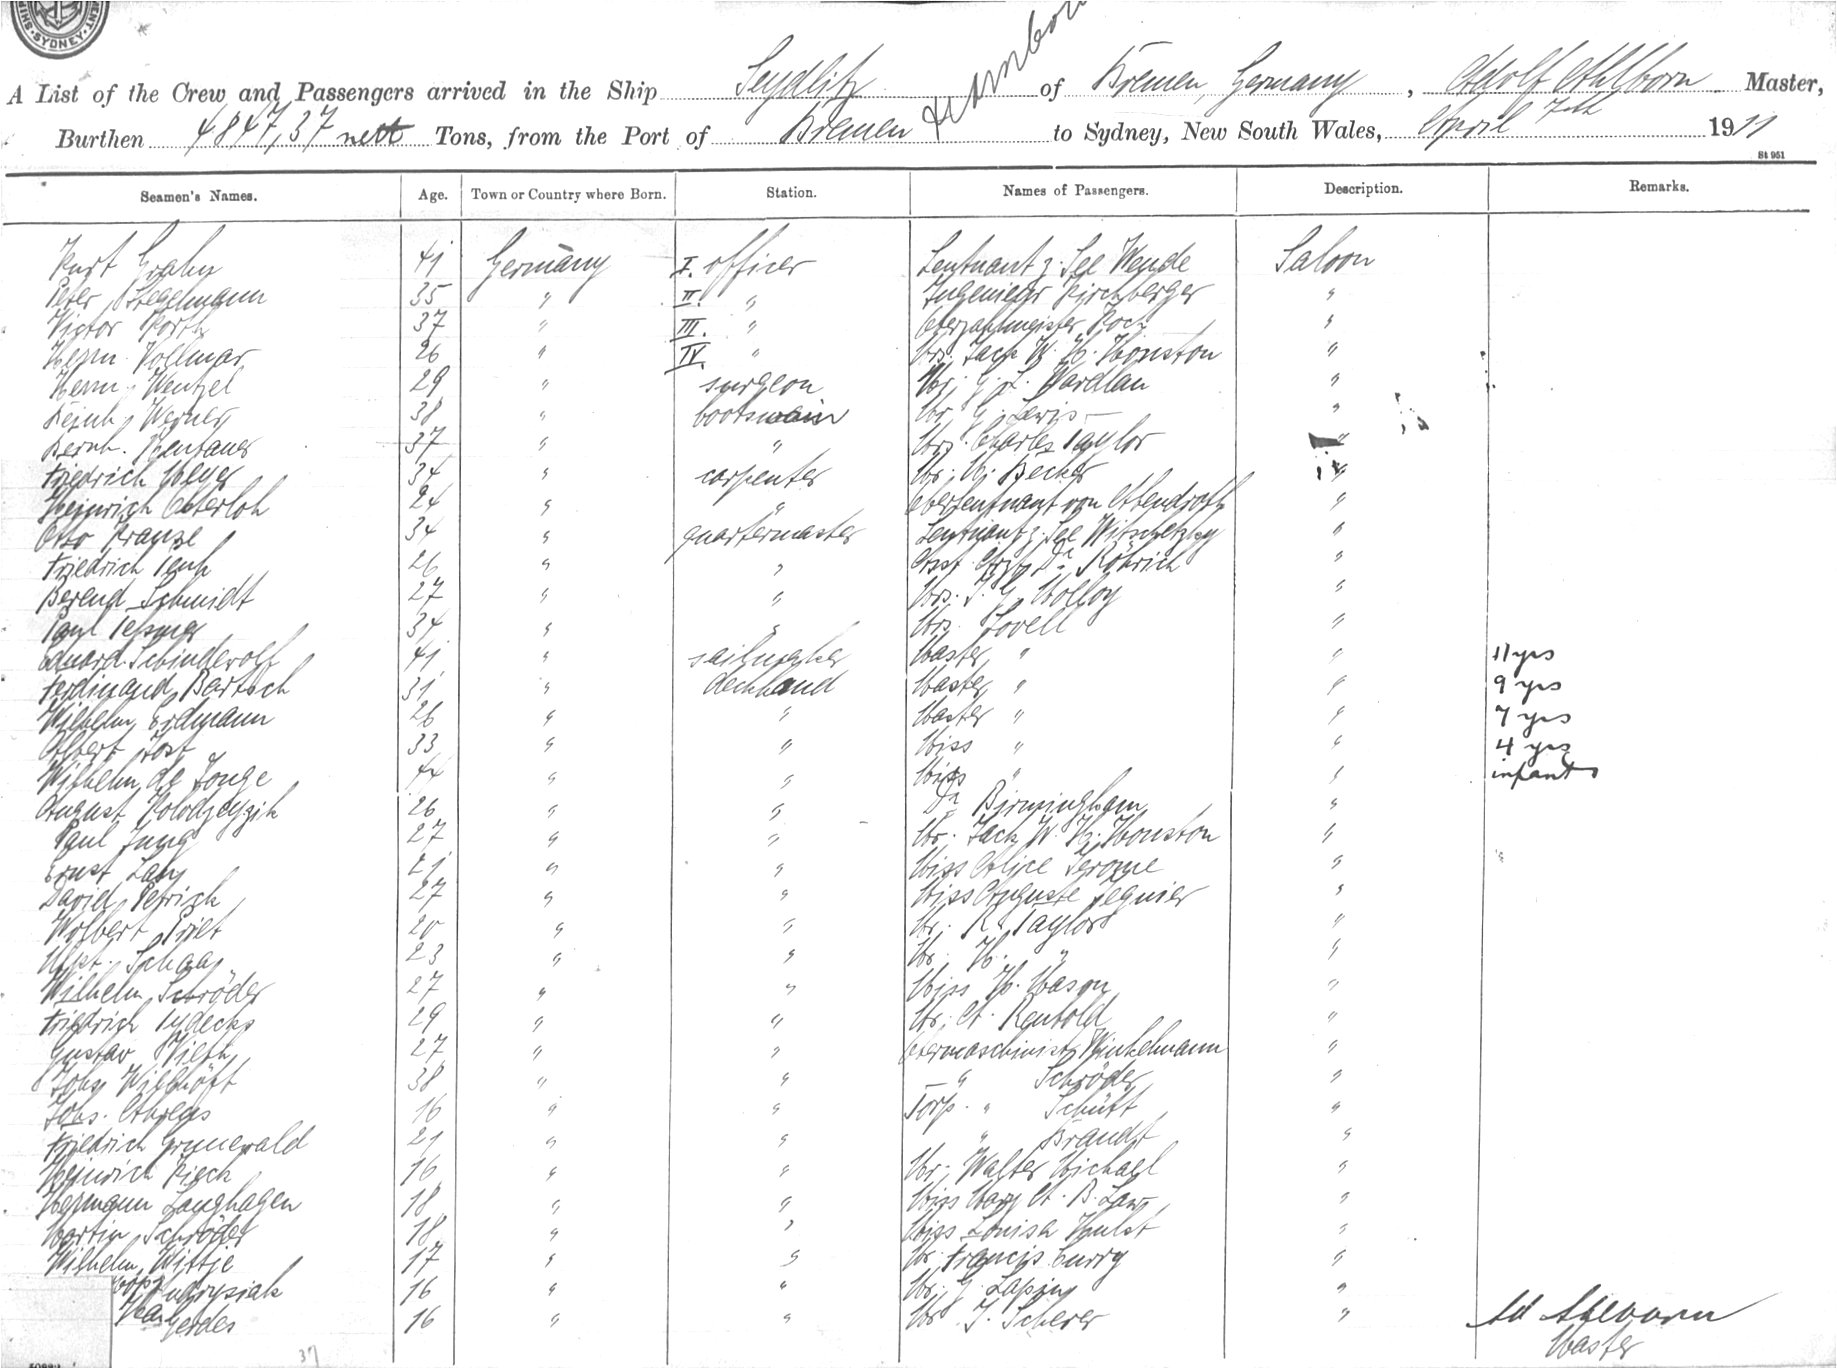 SYDNEY
A List of the Crew and Passengers arrived in the Ship Seydlitz of Bremen, Germany, Adolf Ahlborn Master,
Burthen 4847,37 nett Tons, from the Port of Bremen to Sydney, New South Wales, April 7th 1911
St 951
Seamen's Names. Age. Town or Country where Born. Station. Names of Passengers. Description. Remarks.
Kurt Grahn 41 Germany I. officer Leutnant z. See Wende Saloon
Peter Stegelmann 35 " II. " Ingenieur Kirchberger "
Victor Korth 37 " III. " Oberzahlmeister Koch "
Herm. Vollmar 26 " IV. " Mrs. Jack W. H. Houston "
Herm. Wentzel 29 " surgeon Mr. G. L. Wardlau "
Reinh. Werner 38 " bootswain Mr. G. Lewis "
Bernh. 37 " " Mrs. Charles Taylor "
Friedrich Meyer 34 " carpenter Mr. H. Becker "
Heinrich Osterloh 24 " " Oberleutnant von Abendroth "
Otto Krause 34 " quartermaster Leutnant z. See Witschetzky "
Friedrich 26 " " Dr. Röhrich "
Berend Schmidt 27 " " Mrs. T. G. Molloy "
Paul Tessmer 34 " " Mrs. Lovell "
Eduard Schindewolf 41 " sailmaker Master " " 11 yrs
Ferdinand Bartsch 31 " deckhand Master " " 9 yrs
Wilhelm Erdmann 26 " " Master " " 7 yrs
Albert Jost 33 " " Miss " " 4 yrs
Wilhelm de Jonge 44 " " Miss " " infant
August Kolodjeyzik 26 " " Dr. Birmingham "
Paul Jung 27 " " Mr. Jack W. H. Houston "
Ernst 21 " " Miss Alice Jerome "
David Petrich 27 " " Miss Auguste Reguier "
Wolbert Priet 20 " " Mr. R. Taylor "
Schaa 23 " " Mr. H. " "
Wilhelm Schröder 27 " " Miss H. Mason "
Friedrich Tydecks 29 " " Mr. A. Reubold "
Gustav Vieth 27 " " Obermaschinist Winkelmann "
Johs. Willhöft 38 " " " Schröder "
Johs. Ahrens 16 " " Torp. " Schütt "
Friedrich Grunewald 21 " " " Brandt "
Heinrich Pieck 16 " " Mr. Walter Michael "
Hermann Langhagen 18 " " Miss Mary A. B. Law "
Martin Schröder 18 " " Miss Louisa Hulst "
Wilhelm Wittje 17 " " Mr. Francis Curry "
Andrysiak 16 " " Mr. G. Lapin "
Gerdes 16 " " Mr J. Scherer " Ad Ahlborn
Master
37